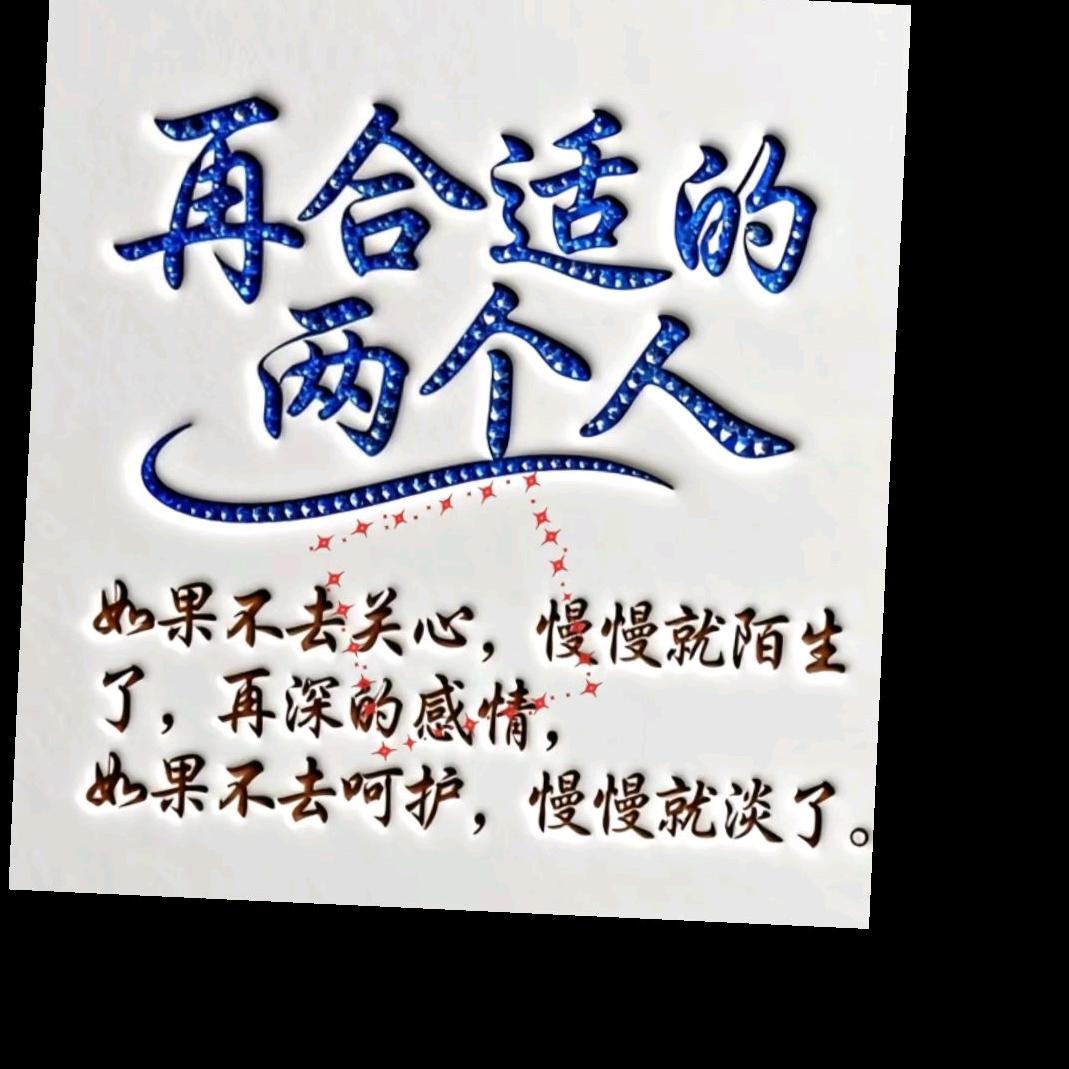 再合适的
两个人
如果不去关心，慢慢就陌生
了，再深的感情，
如果不去呵护，慢慢就淡了。